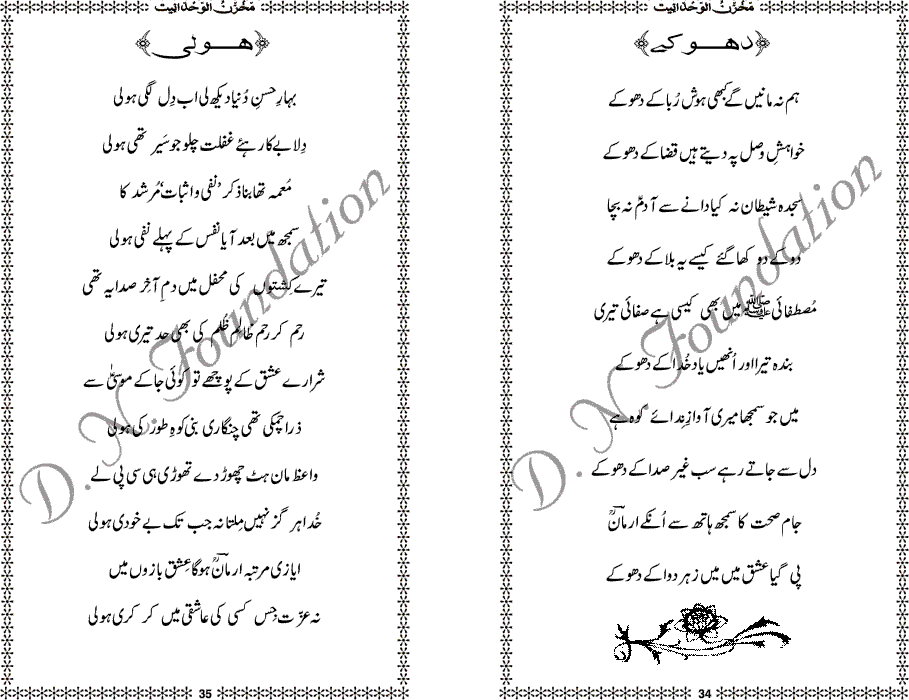 مَخْزَنُ الوَحْدَانِیت
دھوکے
ہم نہ مانیں گے کبھی ہوش رُبا کے دھوکے
خواہشِ وصل پہ دیتے ہیں قضا کے دھوکے
سجدہ شیطان نہ کیا دانے سے آدمؑ نہ بچا
دو کے دو کھا گئے کیسے یہ بلا کے دھوکے
مُصطفائی ﷺ میں بھی کیسی ہے صفائی تیری
بندہ تیرا اور اُنھیں یاد خُدا کے دھوکے
میں جو سمجھا میری آوازِ ندائے کوہ ہے
دل سے جاتے رہے سب غیر صدا کے دھوکے
جام صحت کا سمجھ ہاتھ سے اُنکے ارمانؔ
پی گیا عشق میں میں زہر دوا کے دھوکے
34
مَخْزَنُ الوَحْدَانِیت
ہولی
بہارِ حسنِ دُنیا دیکھ لی اب دِل لگی ہولی
دِلا بے کار رہئے غفلت چلو جو سَیر تھی ہولی
مُعمہ تھا بنا ذکر ’نفی و اثبات‘ مُرشد کا
سمجھ میں بعد آیا نفس کے پہلے نفی ہولی
تیرے کِشتوں کی محفل میں دمِ آخِر صدا یہ تھی
رحم کر رحم ظالِم ظُلم کی بھی حد تیری ہولی
شرارے عشق کے پوچھے تو کوئی جا کے موسیٰؑ سے
ذرا چمکی تھی چنگاری بنی کوہِ طور کی ہولی
واعظ مان ہٹ چھوڑ دے تھوڑی ہی سی پی لے
خُدا ہر گز نہیں مِلتا نہ جب تک بے خودی ہولی
ایازی مرتبہ ارمانؔ ہوگا عِشق بازوں میں
نہ عزّت جِس کسی کی عاشقی میں کر کری ہولی
35
D. N Foundation
D. N Foundation